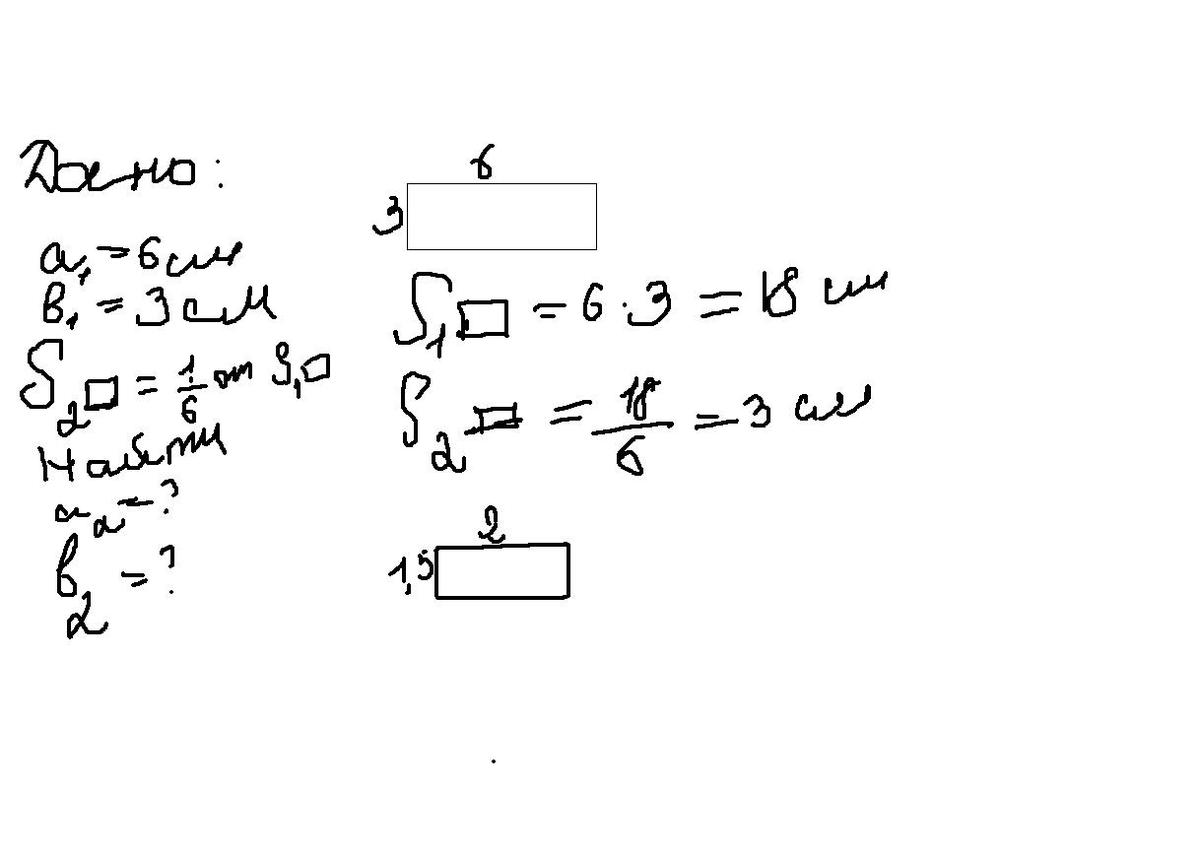 Дано:
a₁ = 6 см
в₁ = 3 см
S₂▭ = 1/6 от S₁▭
Найти
a₂ = ?
в₂ = ?
6
3
S₁▭ = 6 · 3 = 18 см
S₂▭ = 18/6 = 3 см
2
1,5